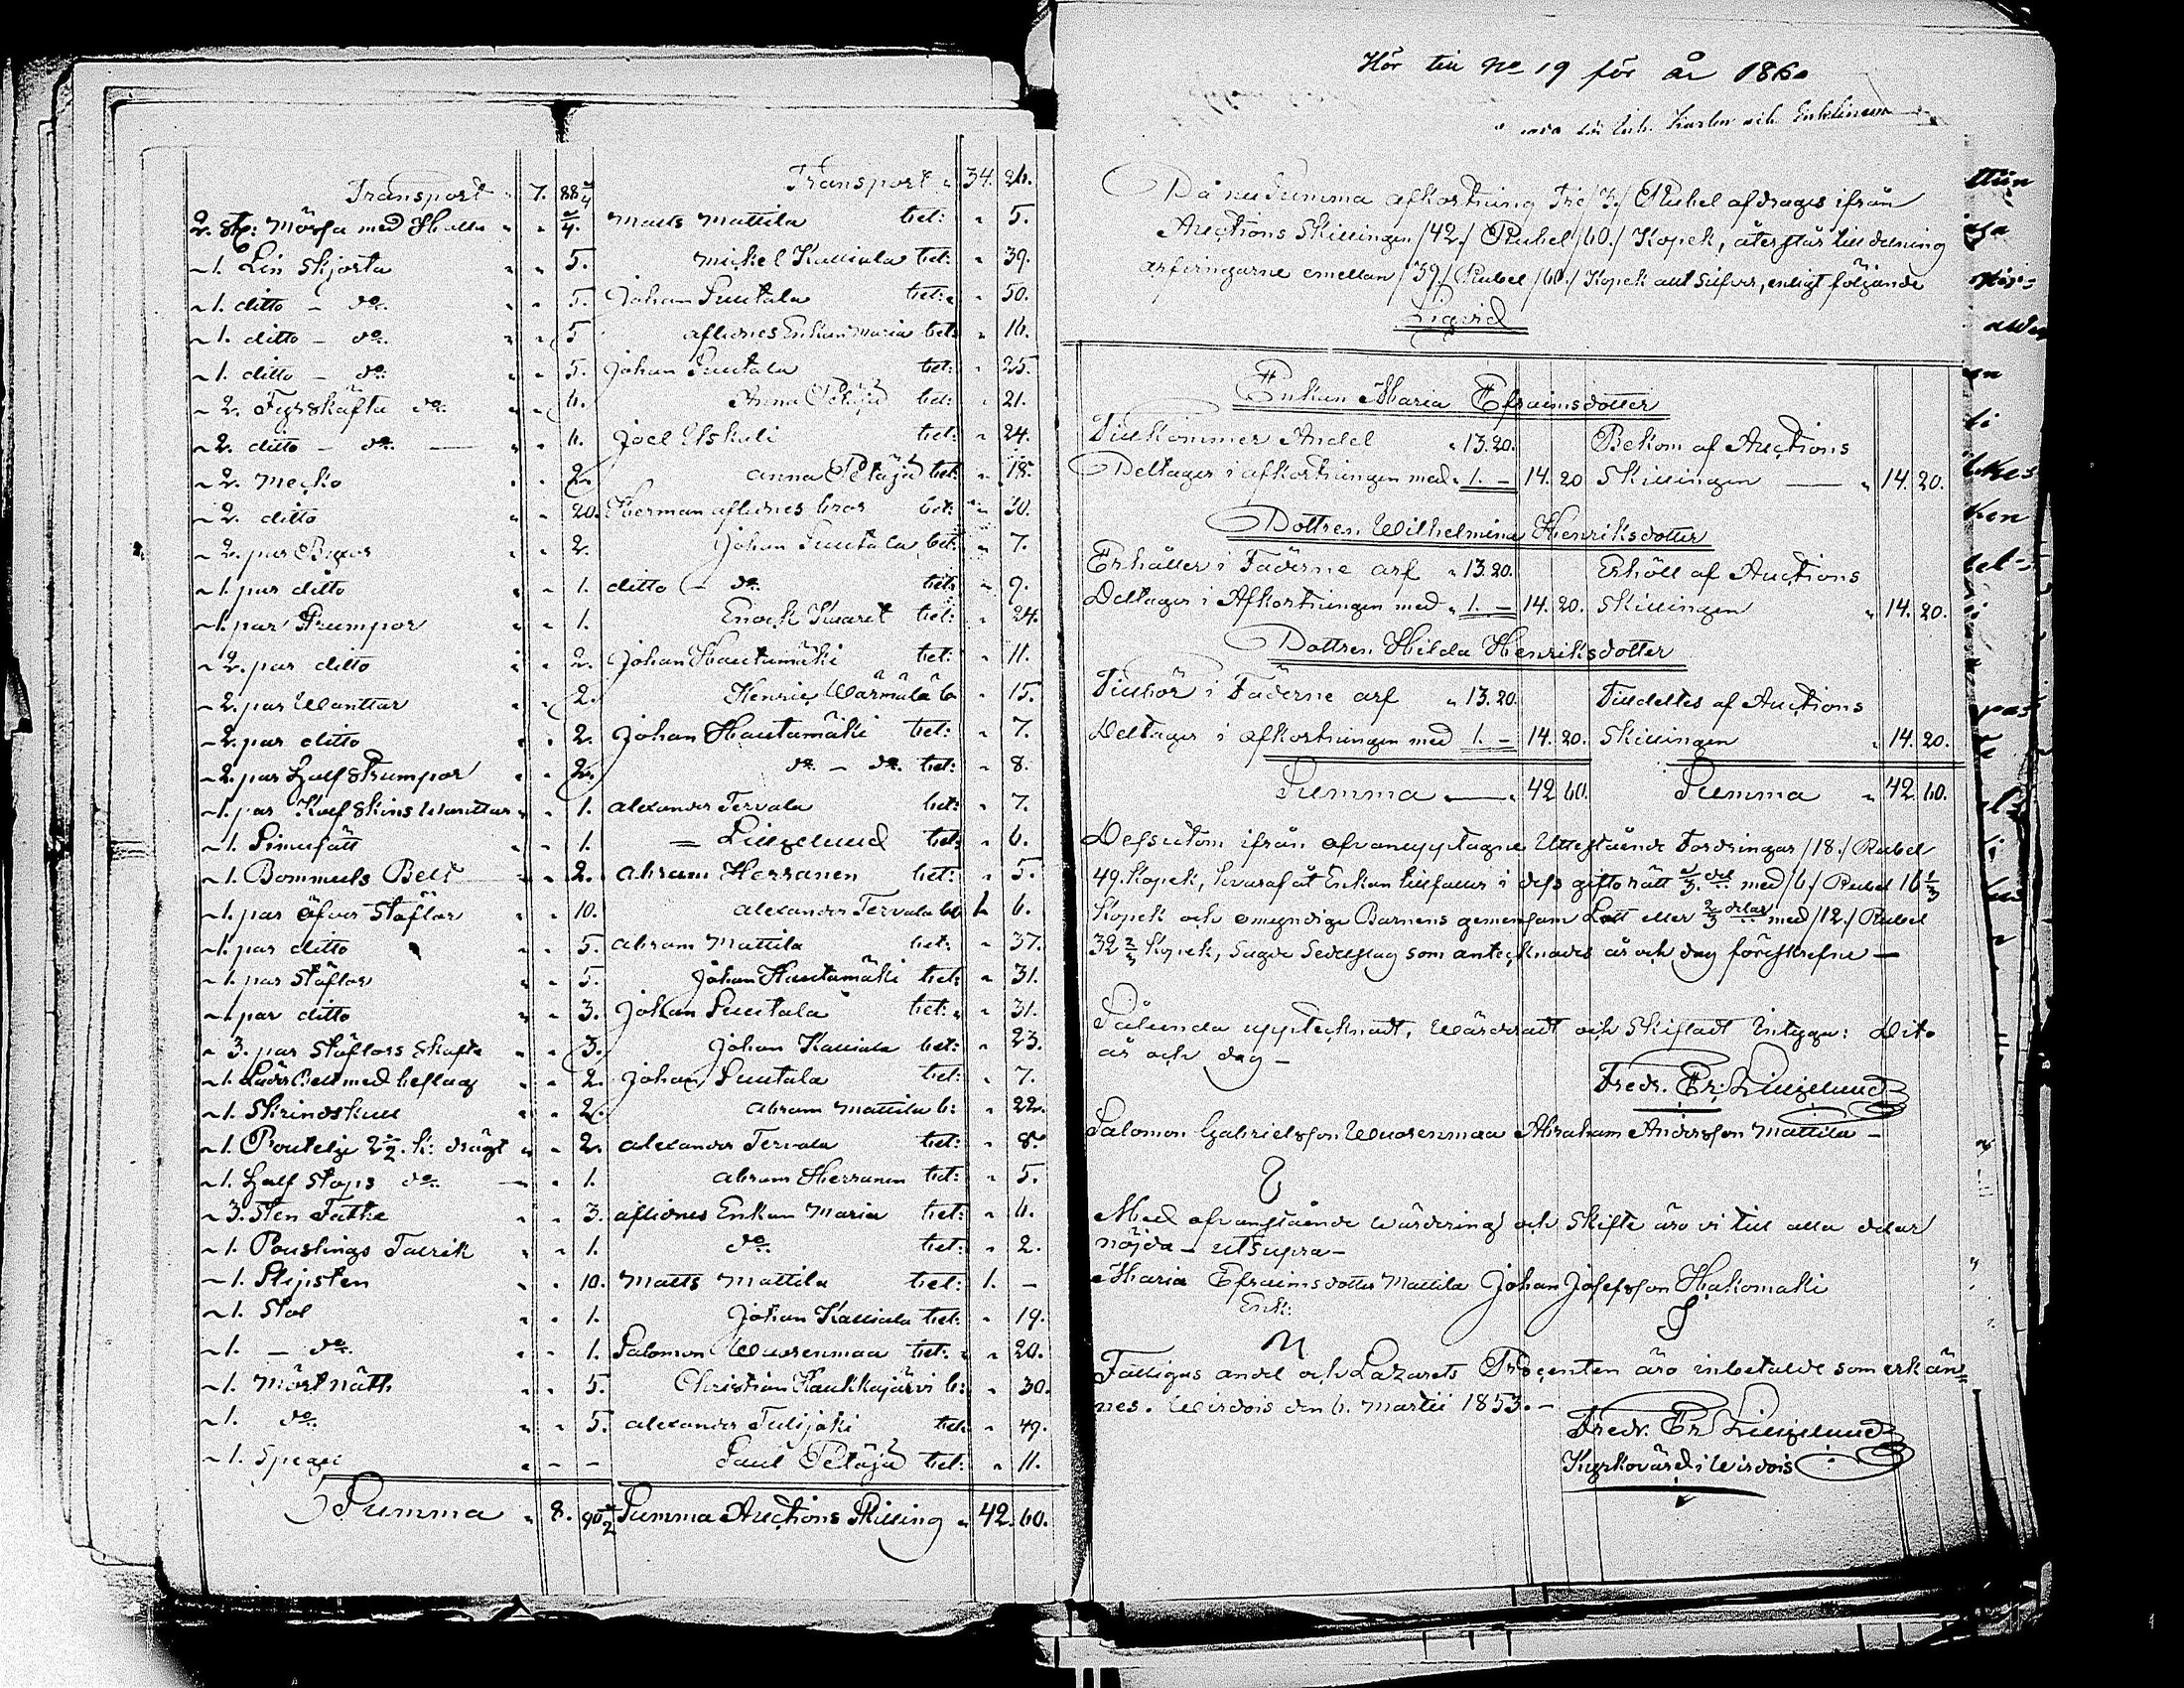 Transport " 7. 88 3/4 Transport " 34. 26.
2. st: Mössa med " " 3/4. Matts Mattila bet: " 5.
1. Lin Skjorta " " 5. Michel Kalliala bet: " 39.
1. ditto – do. " " 5. Johan Suutala bet: " 50.
1. ditto – do. " " 5 aflidnes Enkan Maria bet: " 16.
1. ditto – do. " " 5. Johan Suutala bet: " 25.
2. Fyrskäfta do. " " 6. Anna Petäjä bet: " 21.
2. ditto – do. — " " 6. Joel bet: " 24.
2. Mecko " " 2. Anna Petäjä bet: " 18.
2. ditto " " 20. Herman aflidnes bror bet: " 30.
2. par Byxor " " 2. Johan Suutala bet: " 7.
1. par ditto " " 1. ditto – do. bet: " 9.
1. par Strumpor " " 1. Enock bet: " 24.
2. par ditto " " 2. Johan Hautamäki bet: " 11.
2. par Wanttar " " 2. Henric Wärmälä b: " 15.
2. par ditto " " 2. Johan Hautamäki bet: " 7.
2. par Half Strumpor " " 2. do. – do. bet: " 8.
1. par Kalfskins Wanttar " " 1. Alexander Tervala bet: " 7.
1. " " 1. = Liljelund bet: " 6.
1. Bommuls Belt " " 2. Abram Herranen bet: " 5.
1. par öfver Stöflar " " 10. Alexander Tervala bet: 1. 6.
1. par ditto " " 5. Abram Mattila bet: " 37.
1. par Stöflar " " 5. Johan Hautamäki bet: " 31.
1. par ditto " " 3. Johan Suutala bet: " 31.
3. par Stöflors Skafte " " 3. Johan Kalliala bet: " 23.
1. Läder Belt med beslag " " 2. Johan Suutala bet: " 7.
1. Skrindskull " " 2. Abram Mattila b: " 22.
1. Boutelje 2 1/2 k: drägt " " 2. Alexander Tervala bet: " 8.
1. Half Stops do. — " 1. Abram Herranen bet: " 5.
3. Sten Fatt " " 3. aflidnes Enkan Maria bet: " 6.
1. Postlings Talrik " " 1. do. bet: " 2.
1. Slipsten " " 10. Matts Mattila bet: 1. –
1. Stol " " 1. Johan Kalliala bet: " 19.
1. – do. " " 1. Salomon Wuorenmaa bet: " 20.
1. Mörtnät " " 5. Christian Haukkajärvi b: " 30.
1. do. " " 5. Alexander Tulijoki bet: " 49.
1. Spegel " – – Saul Petäjä bet: " 11.
Summa " 8. 90 1/2 Summa Auctions Skilling " 42. 60.
Hör till No 19 för år 1860
Då nu Summa afkortning Tre /3./ Rubel afdrages ifrån
Auctions Skillingen /42./ Rubel /60./ Kopek, återstår till delning
arfvingarne emellan /39./ Rubel /60./ Kopek allt Silfver, enligt följande
Liqvid
Enkan Maria Efraimsdotter
Tillkommer Andel " 13.20. Bekom af Auctions
Deltager i afkortningen med " 1. – 14. 20 Skillingen — " 14. 20.
Dottren Wilhelmina Henriksdotter
Erhåller i Fäderne arf " 13.20. Erhöll af Auctions
Deltager i Afkortningen med " 1. – 14. 20. Skillingen " 14. 20.
Dottren Hilda Henriksdotter
Tillhör i Fäderne arf " 13.20. Tilldeltes af Auctions
Deltager i afkortningen med 1. – 14. 20. Skillingen " 14. 20.
Summa — " 42 60. Summa " 42 60.
Dessutom ifrån ofvanupptagne Utestående Fordringar /18./ Rubel
49. Kopek, hvaraf åt Enkan tillfaller i dess giftorätt 1/3 del med /6./ Rubel 16 1/3
Kopek och omyndige Barnens gemensam Lott eller 2/3 delar med /12./ Rubel
32 2/3 Kopek, Sagde som antecknades år och dag föreskrefne —
Sålunda upptecknadt, Wärderadt och Skiftadt Intyga: Dito
år och dag –
Fredr. Er: Liljelund
Salomon Gabrielsson Wuorenmaa Abraham Andersson Mattila –
Med ofvanstående wärdering och Skifte äro vi till alla delar
nöjda – utsupra –
Maria Efraimsdotter Mattila Johan Josefsson Hakomäki
Enk:
M
Fattigas andel och Lazarets Procenten äro inbetalde som erkän-
nes. Wirdois den 6. Martii 1853. –
Fredr. Er Liljelund
Kyrkovärd i Wirdois